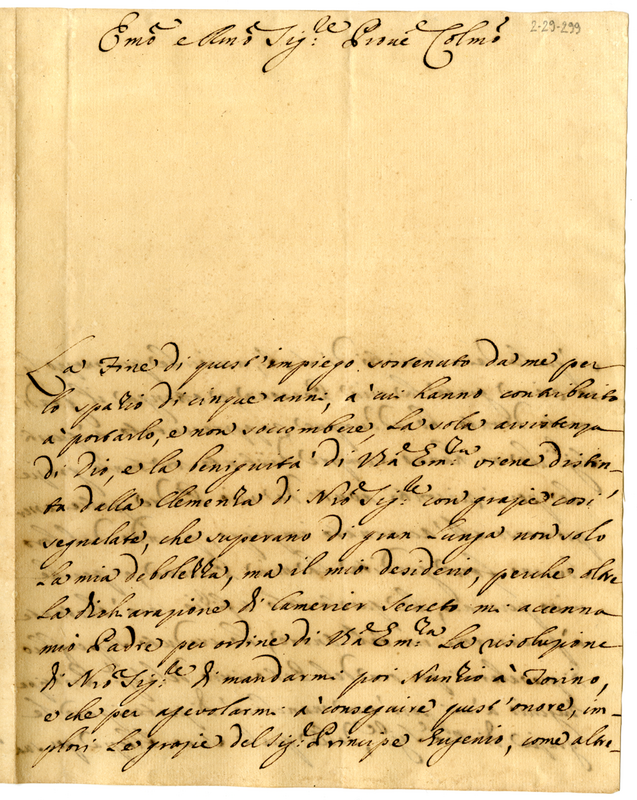 2-29-299
Emo e Rmo Sig.re Prone Colmo
La Fine di quest'impiego sostenuto da me per
lo spazio di cinque anni, à cui hanno contribuito
à portarlo, e non soccombere, la sola assistenza
di Dio, e la benignità di Vra Em.za viene distin-
ta dalla Clemenza di Nro Sig.re con grazie così
segnalate, che superano di gran lunga non solo
la mia debolezza, ma il mio desiderio, perche oltre
la dichiarazione di Camerier Secreto mi accenna
mio Padre per ordine di Vra Em.za La risoluzione
di Nro Sig.re di mandarmi poi Nunzio à Torino,
e che per agevolarmi à conseguire quest'onore, im-
plori le grazie del Sig.r Principe Eugenio, come altre-